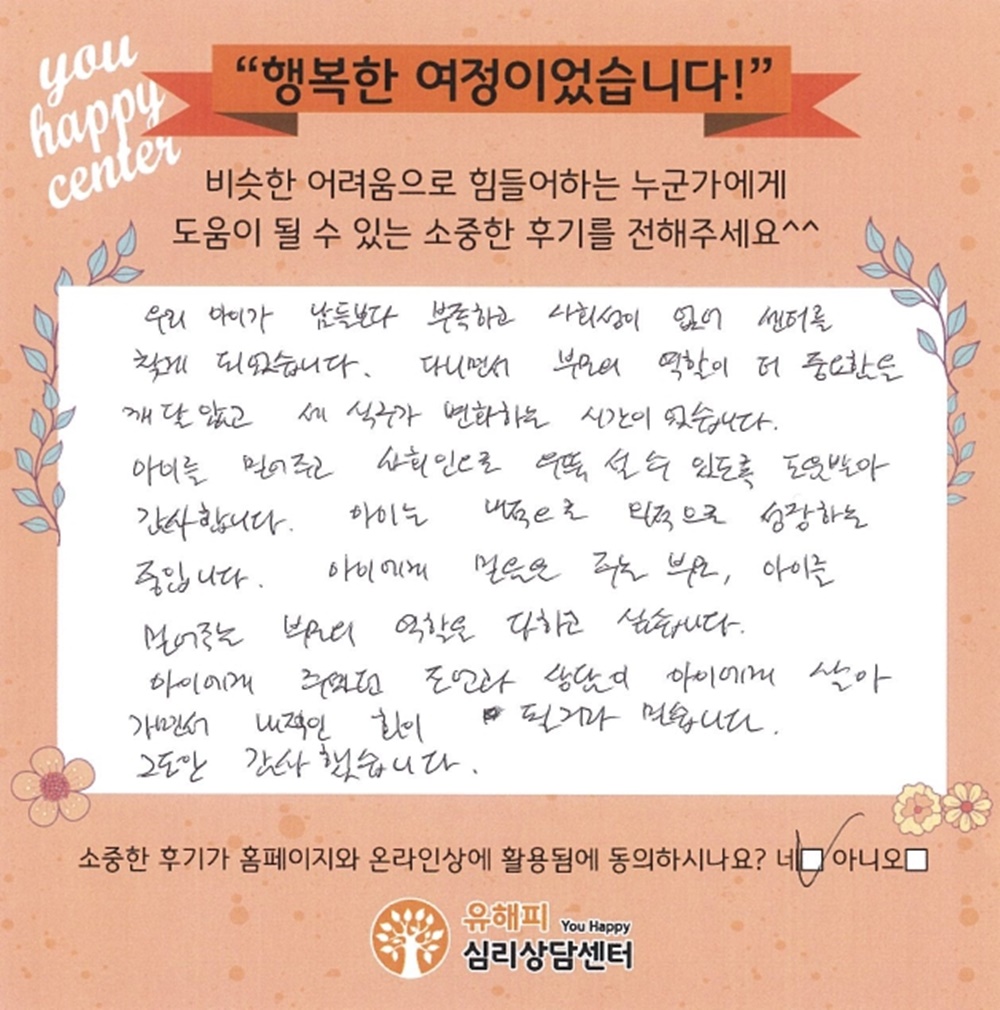 you
happy
center
“행복한 여정이었습니다!”
비슷한 어려움으로 힘들어하는 누군가에게
도움이 될 수 있는 소중한 후기를 전해주세요^^
우리 아이가 남들보다 부족하고 사회성이 없어 센터를
찾게 되었습니다. 다니면서 부모의 역할이 더 중요함을
깨달았고 세 식구가 변화하는 시간이 였습니다.
아이를 믿어주고 사회인으로 우뚝 설 수 있도록 도웃받아
감사합니다. 아이는 내적으로 외적으로 성장하는
중입니다. 아이에게 믿음은 주는 부모, 아이를
믿어주는 부모의 역할은 다하고 싶습니다.
아이에게 주셨던 조언과 상담이 아이에게 살아
가면서 내적인 힘이 될거라 믿습니다.
그동안 감사했습니다.
소중한 후기가 홈페이지와 온라인상에 활용됨에 동의하시나요? 네 아니오
유해피 You Happy
심리상담센터